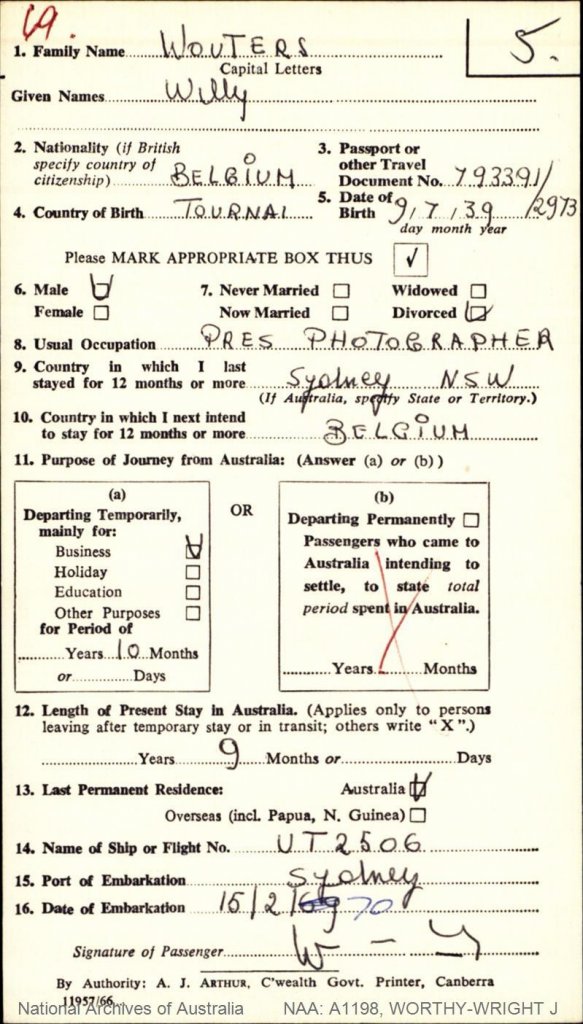 69.
5.
1. Family Name WOUTERS
Capital Letters
Given Names Willy
2. Nationality (if British
specify country of
citizenship) BELGIUM
3. Passport or
other Travel
Document No. 793391/
2973
4. Country of Birth TOURNAI
5. Date of
Birth 9/7/39
day month year
Please MARK APPROPRIATE BOX THUS ✓
6. Male
Female
7. Never Married
Now Married
Widowed
Divorced
8. Usual Occupation PRES PHOTOGRAPHER
9. Country in which I last
stayed for 12 months or more Sydney NSW
(If Australia, specify State or Territory.)
10. Country in which I next intend
to stay for 12 months or more BELGIUM
11. Purpose of Journey from Australia: (Answer (a) or (b))
(a)
Departing Temporarily,
mainly for:
Business
Holiday
Education
Other Purposes
for Period of
Years 10 Months
or Days
OR
(b)
Departing Permanently
Passengers who came to
Australia intending to
settle, to state total
period spent in Australia.
Years Months
12. Length of Present Stay in Australia. (Applies only to persons
leaving after temporary stay or in transit; others write "X".)
Years 9 Months or Days
13. Last Permanent Residence: Australia
Overseas (incl. Papua, N. Guinea)
14. Name of Ship or Flight No. UT2506
15. Port of Embarkation Sydney
16. Date of Embarkation 15/2/69 70
Signature of Passenger
By Authority: A. J. ARTHUR, C'wealth Govt. Printer, Canberra
11957/66
National Archives of Australia NAA: A1198, WORTHY-WRIGHT J